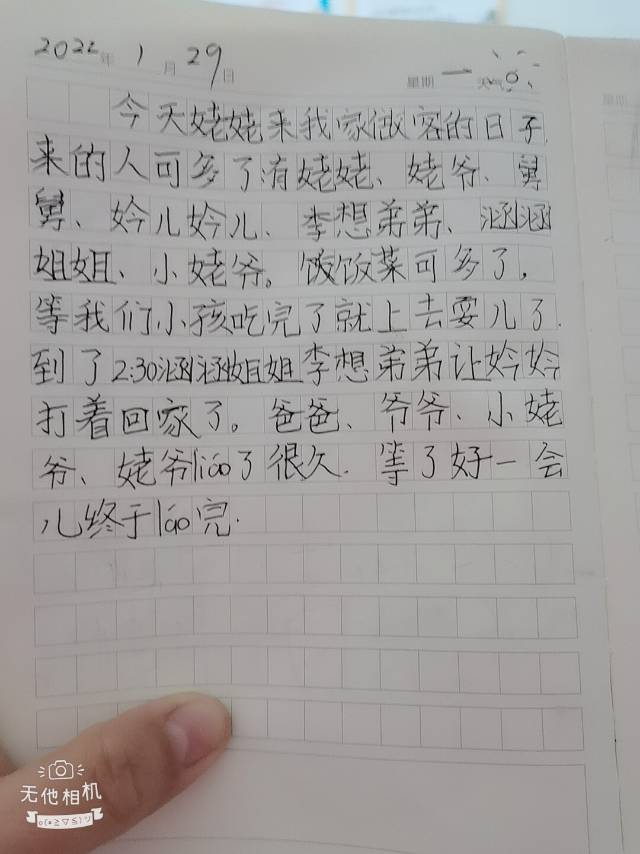 2022年1月29日 星期一 天气
今天姥姥来我家做客的日子,
来的人可多了有姥姥、姥爷、舅
舅、妗儿妗儿、李想弟弟、涵涵
姐姐、小姥爷。饭饭菜可多了,
等我们小孩吃完了就上去耍儿了.
到了2:30涵涵姐姐李想弟弟让妗妗
打着回家了。爸爸、爷爷、小姥
爷、姥爷liáo了很久.等了好一会
儿终于liáo完.
无他相机